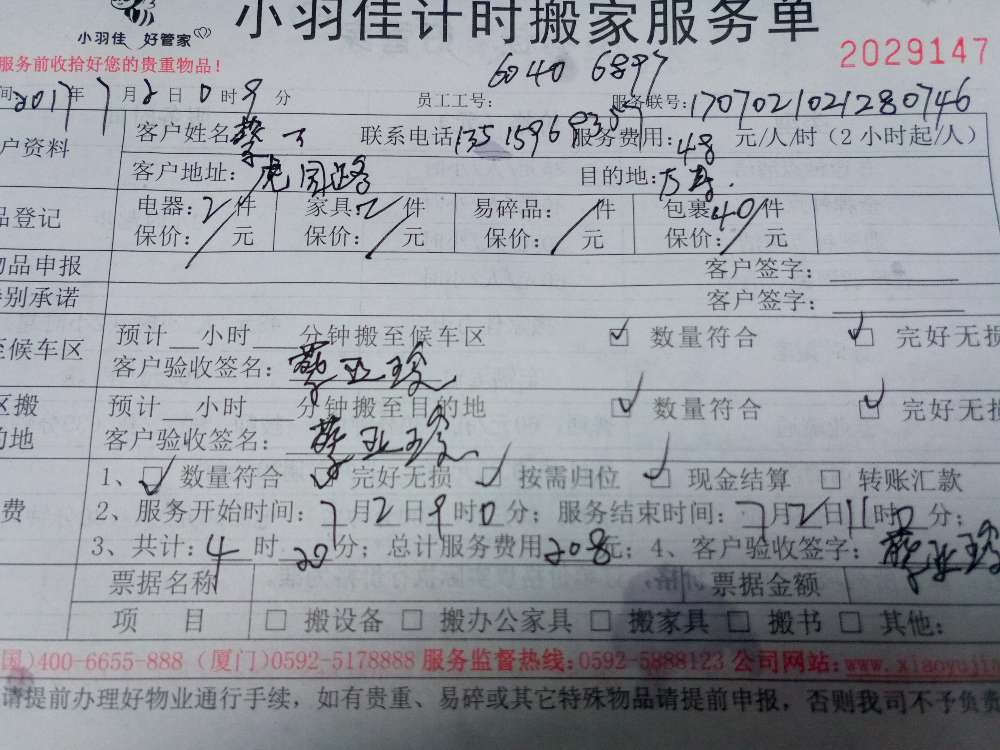 小羽佳计时搬家服务单
小羽佳 好管家
服务前收拾好您的贵重物品! 2029147
60406897
间 2017年7月2日0时9分 员工工号: 服务联号: 1707021021280746
户资料 客户姓名: 联系电话 服务费用:48元/人/时(2小时起/人)
客户地址:虎园路 目的地:
品登记 电器:2/件 家具:2/件 易碎品:/件 包裹40/件
保价:/元 保价:/元 保价:/元 保价:/元
物品申报 客户签字:
特别承诺 客户签字:
至候车区 预计__小时__分钟搬至候车区 ☑ 数量符合 ☑ 完好无损
客户验收签名:蔡亚琼
区搬 预计__小时__分钟搬至目的地 ☑ 数量符合 ☑ 完好无损
的地 客户验收签名:蔡亚琼
1、☑ 数量符合 ☑ 完好无损 ☑ 按需归位 ☑ 现金结算 □ 转账汇款
费 2、服务开始时间:7月2日9时0分;服务结束时间:7月2日11时 分;
3、共计:4时20分;总计服务费用208元;4、客户验收签字:蔡亚琼
票据名称 票据金额
项 目 □ 搬设备 □ 搬办公家具 □ 搬家具 □ 搬书 □ 其他:
国)400-6655-888 (厦门)0592-5178888 服务监督热线:0592-5888123 公司网站:www.xiaoyujia
请提前办理好物业通行手续,如有贵重、易碎或其它特殊物品请提前申报,否则我司不予负责